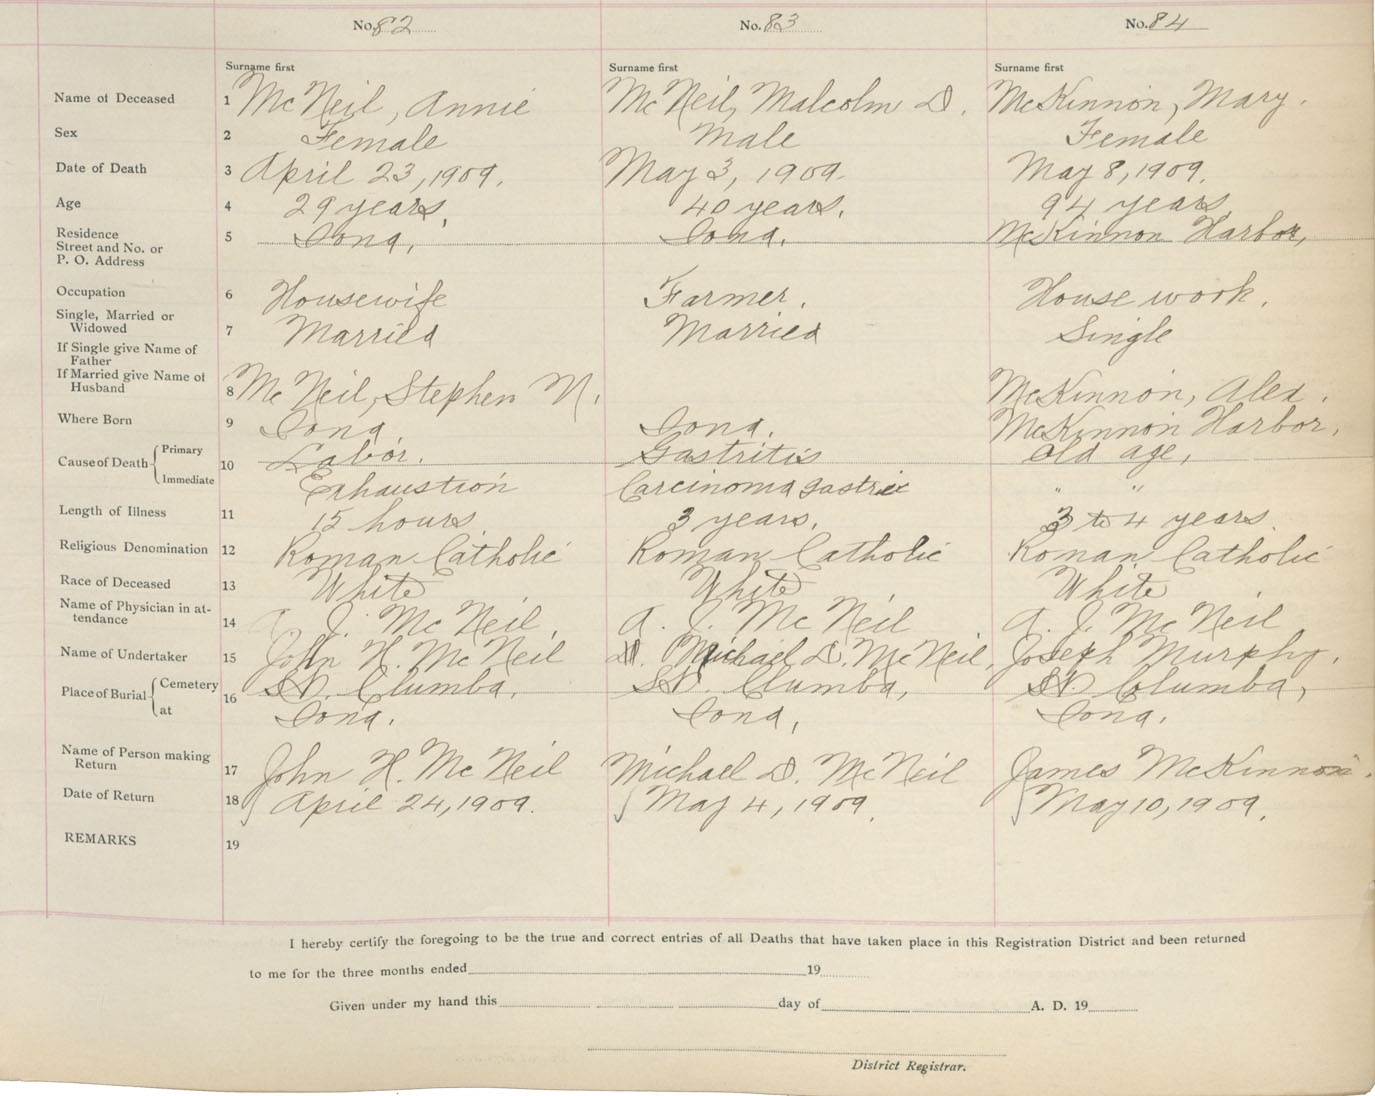 No. 82 No. 83 No. 84
Surname first Surname first Surname first
Name of Deceased 1 McNeil, Annie McNeil, Malcolm D. McKinnon, Mary.
Sex 2 Female Male Female
Date of Death 3 April 23, 1909. May 3, 1909. May 8, 1909.
Age 4 29 years, 40 years. 94 years
Residence
Street and No. or
P. O. Address 5 Iona, Iona. McKinnon Harbor,
Occupation 6 Housewife Farmer. House work.
Single, Married or
Widowed 7 Married Married Single
If Single give Name of
Father
If Married give Name of
Husband 8 McNeil, Stephen N. McKinnon, Alex.
Where Born 9 Iona Iona. McKinnon Harbor,
Cause of Death Primary 10 Labor. Gastritis Old age,
Immediate Exhaustion Carcinoma gastric " "
Length of Illness 11 15 hours 3 years. 3 to 4 years.
Religious Denomination 12 Roman Catholic Roman Catholic Roman Catholic
Race of Deceased 13 White White White
Name of Physician in at-
tendance 14 A. J. McNeil, A. J. McNeil A. J. McNeil
Name of Undertaker 15 John H. McNeil Michael D. McNeil, Joseph Murphy.
Place of Burial Cemetery 16 St. Clumba, St. Clumba, St. Columba,
at Iona. Iona, Iona.
Name of Person making
Return 17 John H. McNeil Michael D. McNeil James McKinnon.
Date of Return 18 April 24, 1909. May 4, 1909. May 10, 1909.
REMARKS 19
I hereby certify the foregoing to be the true and correct entries of all Deaths that have taken place in this Registration District and been returned
to me for the three months ended 19
Given under my hand this day of A. D. 19
District Registrar.